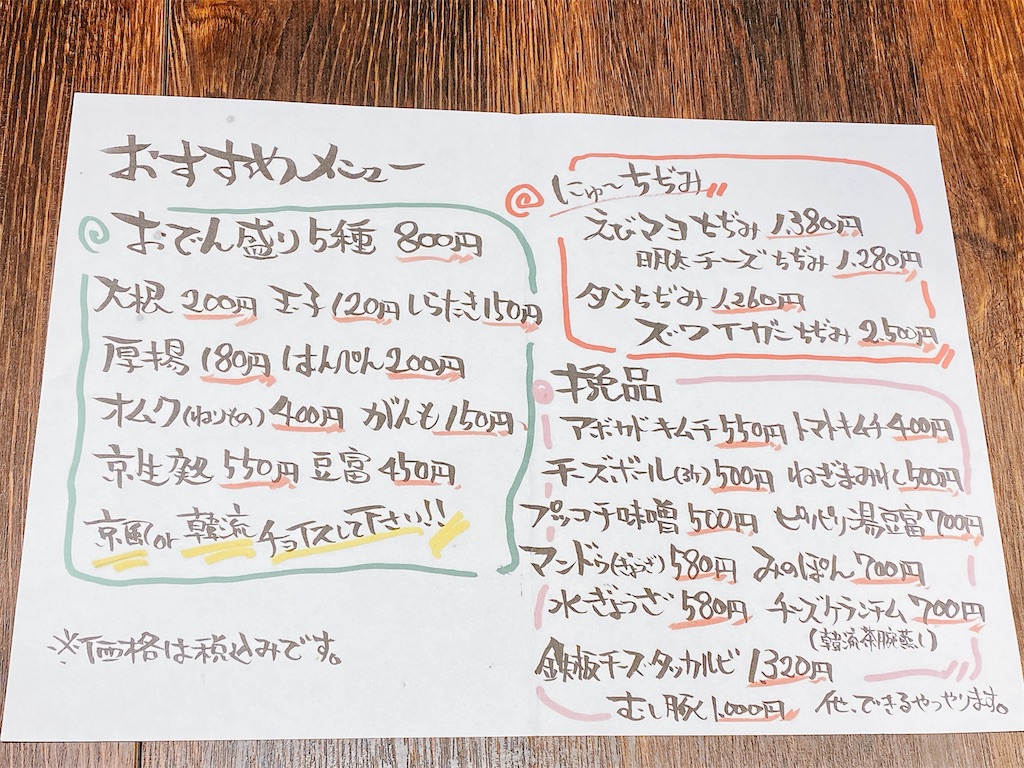 おすすめメニュー
おでん盛り5種 800円
大根 200円 玉子 120円 しらたき 150円
厚揚 180円 はんぺん 200円
オムク(ねりもの) 400円 がんも 150円
京生麩 550円 豆富 450円
京風 or 韓流 チョイスして下さい!!
※価格は税込みです。
にゅ〜ちぢみ
えびマヨちぢみ 1,380円
明太チーズちぢみ 1,280円
タラちぢみ 1,260円
ズワイガニちぢみ 2,500円
挽品
アボカドキムチ 550円 トマトキムチ 400円
チーズボール(3ケ) 500円 ねぎまみれし 500円
プッコチ味噌 500円 ピリピリ湯豆富 700円
マンドゥ(ぎょうざ) 580円 みのぽん 700円
水ぎょうざ 580円 チーズケランチム 700円
(韓流茶腕蒸し)
鉄板チーズタッカルビ 1,320円
むし豚 1,000円 他、できるやつやります。